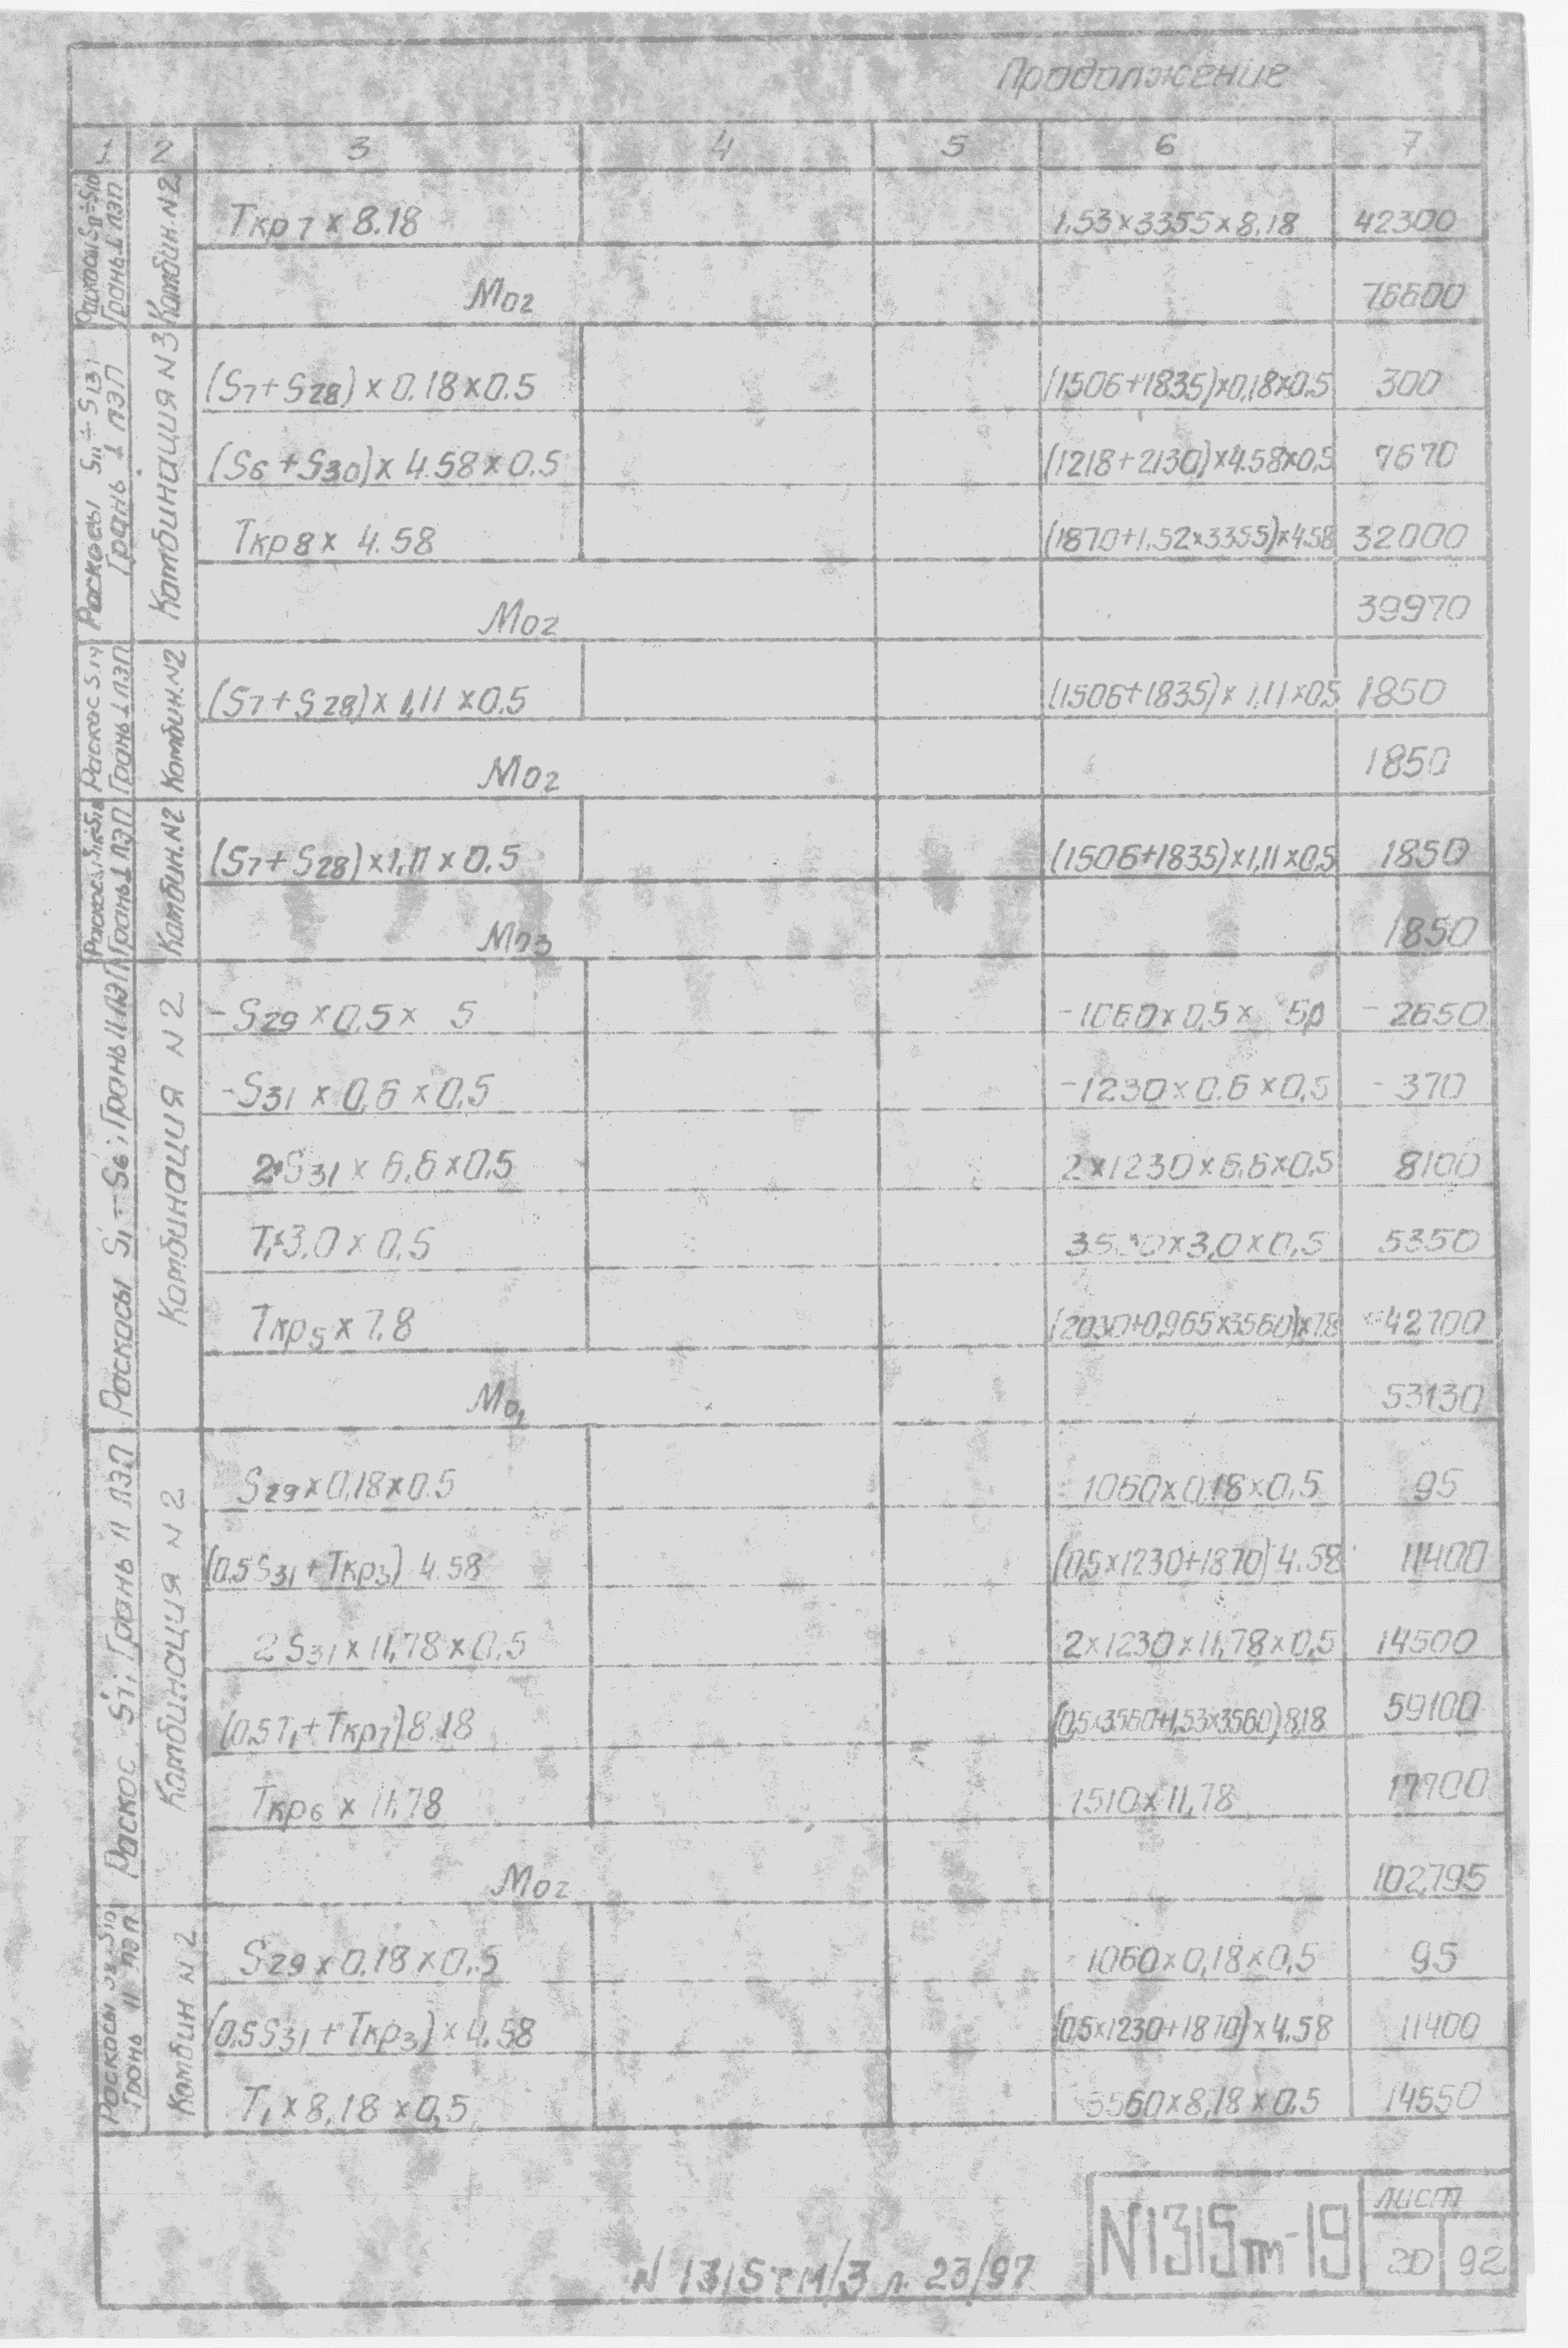 Продолжение
1 2 3 4 5 6 7
Раскосы S8÷S10
Грань ⊥ ЛЭП
Комбин. N2
Tкр7 x 8.18 1,53x3355x8,18 42300
Mo2 76600
Раскосы S11 ÷ S13
Грань ⊥ ЛЭП
Комбинация N3
(S7+S28) x 0.18 x0.5 (1506+1835)x0,18x0.5 300
(S6+S30) x 4.58 x 0.5 (1218+2130)x4.58x0,5 7670
Tкр8 x 4.58 (1870+1.52x3355)x4.58 32000
Mo2 39970
Раскос S14
Грань ⊥ ЛЭП
Комбин. N2
(S7+S28) x 1,11 x0.5 (1506+1835) x 1,11 x0,5 1850
Mo2 1850
Раскосы
Грань ⊥ ЛЭП
Комбин. N2
(S7+S28) x1,11 x 0.5 (1506+1835)x1,11 x0,5 1850
Mo3 1850
Раскосы S1 - S6; Грань II ЛЭП
Комбинация N2
-S29 x0,5 x 5 -1060x0,5x 5,0 -2650
-S31 x 0,6 x 0,5 -1230x0.6 x0,5 -370
2·S31 x 6,6 x0,5 2x1230x6,6x0,5 8100
T1x3,0 x 0,5 x3,0x0,5 5350
Tкр5 x 7.8 (2030+0,965x3560)x7,8 42700
Mo1 53130
Раскос S7; Грань II ЛЭП
Комбинация N2
S29 x0,18x0.5 1060x0,18x0,5 95
(0,5S31 + Tкр3) 4.58 (0,5x1230+1870) 4.58 11400
2S31 x 11,78 x0,5 2x1230x11,78x0,5 14500
(0.5T1+Tкр7) 8.18 (0,5x3560+1,53x3560) 8,18 59100
Tкр6 x 11.78 1510x11,78 17700
Mo2 102795
Раскосы S8-S10
Грань II ЛЭП
Комбин N2
S29 x 0,18 x0,5 1060x0,18x0,5 95
(0,5S31+Tкр3) x 4.58 (0,5x1230+1870) x 4.58 11400
T1 x 8,18 x0,5 3560x8,18x0,5 14550
N1315тм-19 лист
20 92
N 1315тм/3 л. 23/97